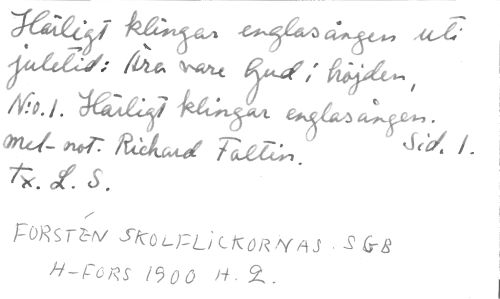 Härligt klingar englasången uti
juletid: Ära vare Gud i höjden,
N:o.1. Härligt klingar englasången.
mel-not. Richard Faltin. Sid. 1.
Tx. L. S.
FORSTÉN SKOLFLICKORNAS. SGB
H-FORS 1900 H. 2.